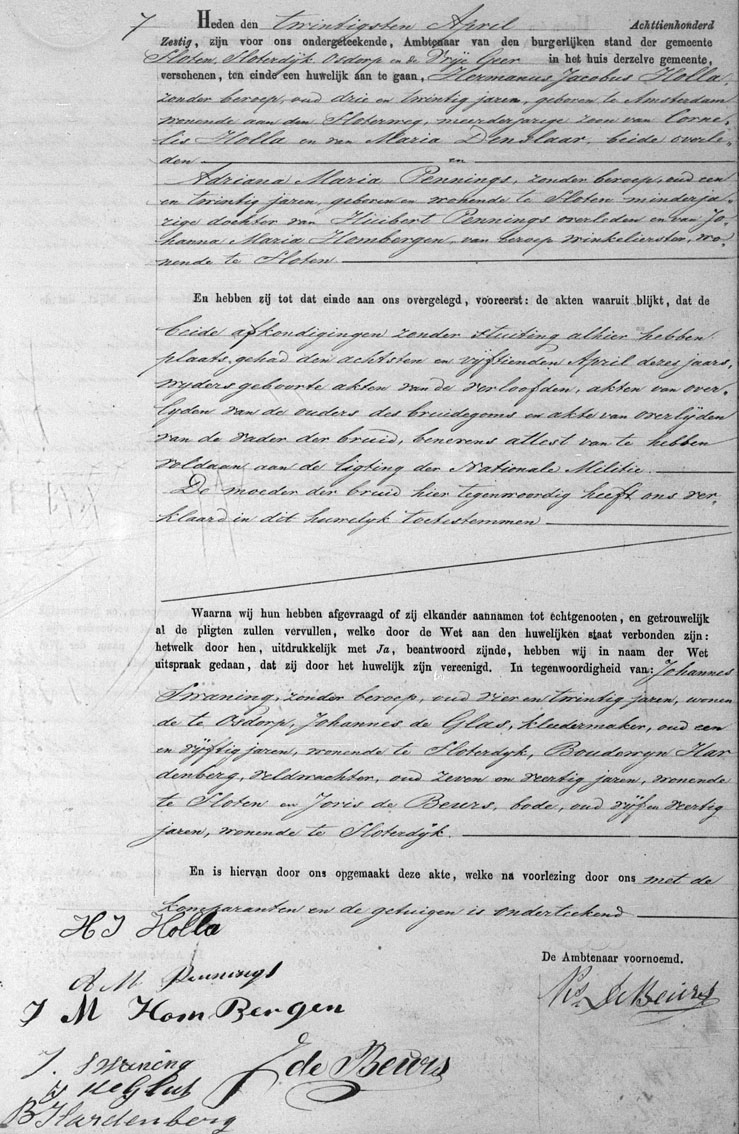 7 Heden den twintigsten April Achttienhonderd
Zestig, zijn voor ons ondergeteekende, Ambtenaar van den burgerlijken stand der gemeente
Sloten, Sloterdijk Osdorp en de Vrije Geer in het huis derzelve gemeente,
verschenen, ten einde een huwelijk aan te gaan, Hermanus Jacobus Holla,
zonder beroep, oud drie en twintig jaren, geboren te Amsterdam
wonende aan den Sloterweg, meerderjarige zoon van Corne-
lis Holla en van Maria Denslaar, beide overle-
den en
Adriana Maria Pennings, zonder beroep, oud een
en twintig jaren, geboren en wonende te Sloten minderja-
rige dochter van Huibert Pennings overleden en van Jo-
hanna Maria Hombergen, van beroep winkelierster, wo-
nende te Sloten
En hebben zij tot dat einde aan ons overgelegd, vooreerst: de akten waaruit blijkt, dat de
beide afkondigingen zonder stuiting alhier hebben
plaats gehad den achtsten en vijftienden April dezes jaars,
wijders geboorte akten van de verloofden, akten van over-
lijden van de ouders des bruidegoms en akte van overlijden
van de vader der bruid, benevens attest van te hebben
voldaan aan de ligting der Nationale Militie.
De moeder der bruid hier tegenwoordig heeft ons ver-
klaard in dit huwelijk toetestemmen
Waarna wij hun hebben afgevraagd of zij elkander aannamen tot echtgenooten, en getrouwelijk
al de pligten zullen vervullen, welke door de Wet aan den huwelijken staat verbonden zijn:
hetwelk door hen, uitdrukkelijk met Ja, beantwoord zijnde, hebben wij in naam der Wet
uitspraak gedaan, dat zij door het huwelijk zijn vereenigd. In tegenwoordigheid van: Johannes
Swaning, zonder beroep, oud vier en twintig jaren, wonen
de te Osdorp, Johannes de Glas, kleedermaker, oud een
en vijftig jaren, wonende te Sloterdyk, Boudewyn Har
denberg, veldwachter, oud zeven en veertig jaren, wonende
te Sloten en Joris de Beurs, bode, oud vijf en veertig
jaren, wonende te Sloterdijk.
En is hiervan door ons opgemaakt deze akte, welke na voorlezing door ons met de
komparanten en de getuigen is onderteekend
H J Holla
De Ambtenaar voornoemd.
A M Pennings
de Beurs
J M Hom Bergen
J. Swaning
J de Beurs
de Glas
B Hardenberg